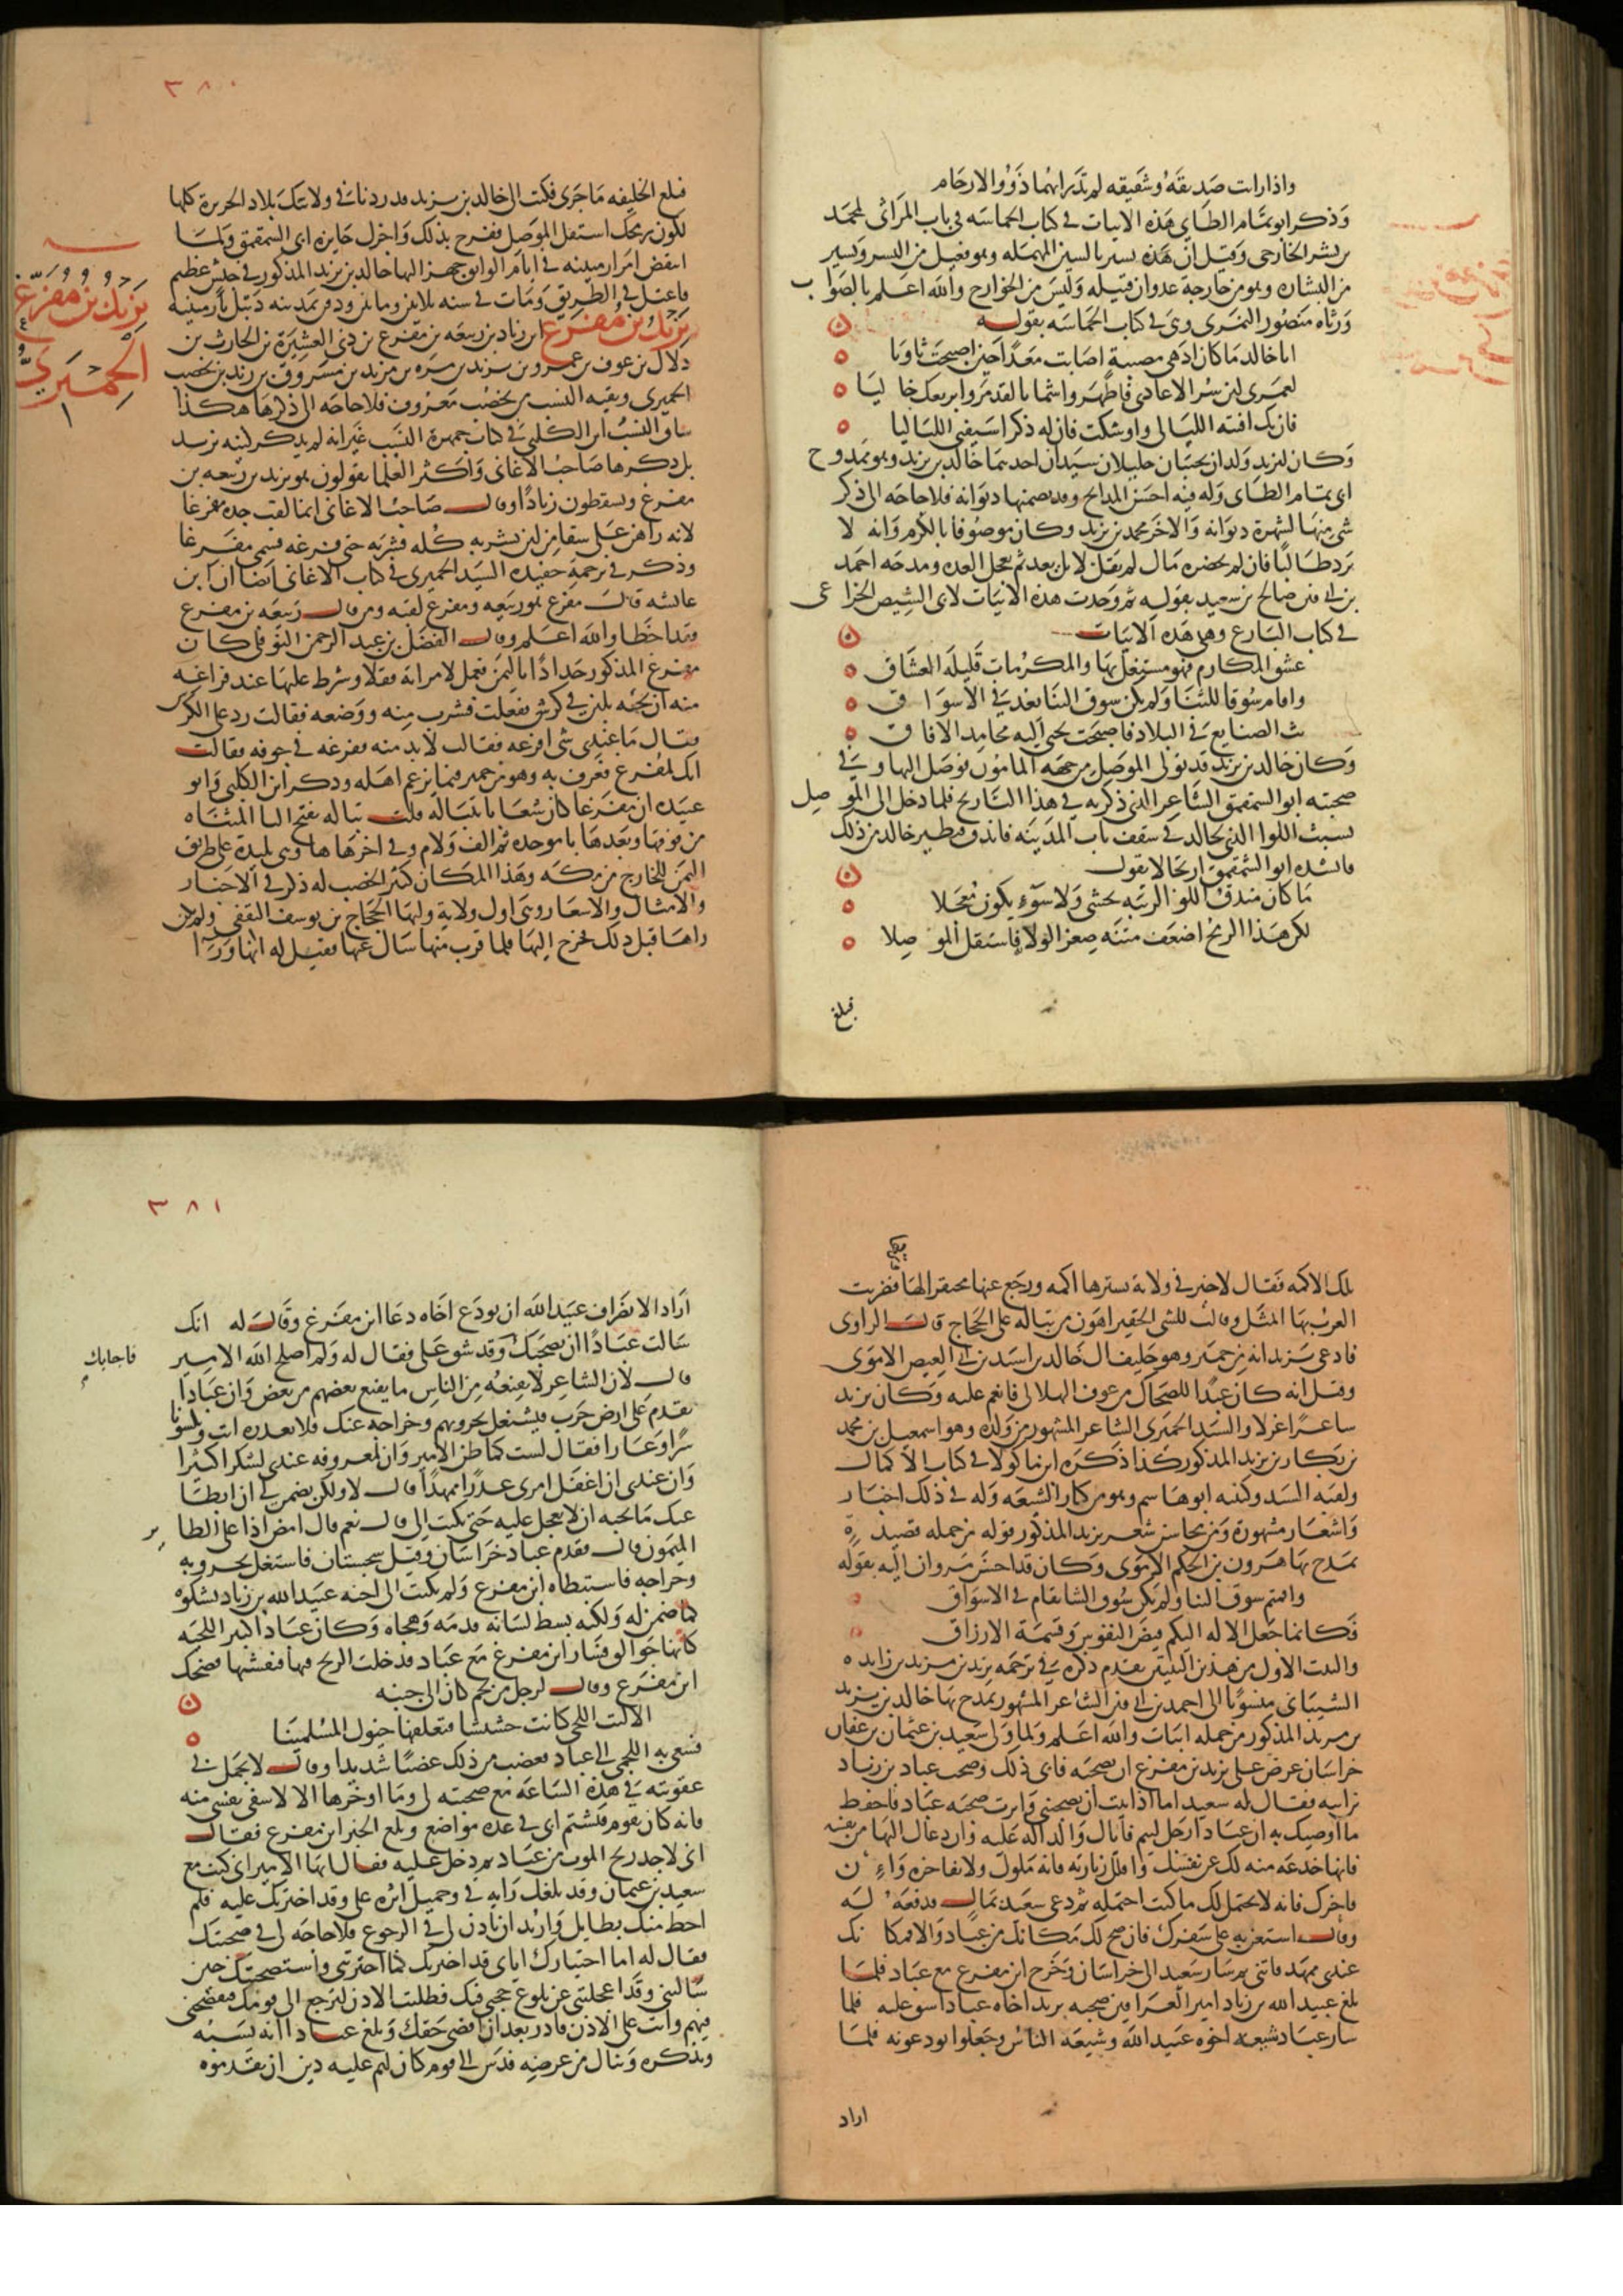 واذا رات صديقه وشقيقه لم تدر ايهما ذوو الارحام
وذكر ابو تمام الطاي هذه الابيات في كتاب الحماسه في باب المراثي لمحمد
بن بشر الخارجي وقيل ان هذه بسير بالسين المهمله وهو فعيل من اليسر وبشير
من البشاره وهو من خارجة عدوان قبيله وليس من الخوارج والله اعلم بالصواب
ورثاه منصور النمري وهي في كتاب الحماسه بقوله
ابا خالد ما كان ادهى مصيبة اصابت معدا حين اصبحت ثاويا
لعمري لئن سر الاعادي فاظهروا شماتا لقد مروا بربعك خاليا
فان تك افنته الليالي واوشكت فان له ذكرا سيفني اللياليا
وكان ليزيد ولدان نجيبان جليلان سيدان احدهما خالد بن يزيد وهو ممدوح
ابي تمام الطاي وله فيه احسن المدايح وقد تضمنها ديوانه فلا حاجه الى ذكر
شي منها لشهرة ديوانه والاخر محمد بن يزيد وكان موصوفا بالكرم وانه لا
يرد طالبا فان لم يحضره مال لم يقل لا بل يعد ثم يعجل العده ومدحه احمد
بن ابي فنن صالح بن سعيد بقوله ثم وجدت هذه الابيات لابي الشيص الخزاعي
في كتاب البارع وهي هذه الابيات
عشق المكارم فهو مشتغل بها والمكرمات قليلة العشاق
واقام سوقا للثنا ولم تكن سوق الثنا تعد في الاسواق
بث الصنايع في البلاد فاصبحت يجبى اليه محامد الافاق
وكان خالد بن يزيد قد تولى الموصل من جهة المامون فوصل اليها وفي
صحبته ابو الشمقمق الشاعر الذي ذكرته في هذا التاريخ فلما دخل الى الموصل
نشبت اللوا الذي لخالد في سقف باب المدينه فاندق فتطير خالد من ذلك
فانشده ابو الشمقمق ارتجالا يقول
ما كان مندق اللوا لريبه تخشى ولا سوء يكون معجلا
لكن هذا الريح اضعف متنه صغر الولاية فاستقل الموصلا
فبلغ
٣٨٠
فبلغ الخليفه ما جرى فكتب الى خالد بن يزيد قد زدناك في ولايتك بلاد الجزيرة كلها
لكون رمحك استقل الموصل ففرح بذلك واجزل جايزه ابي الشمقمق ولما
انتقض امر ارمينيه في ايام الواثق جهز اليها خالد بن يزيد المذكور في جيش عظيم
فاعتل في الطريق ومات في سنه ثلاثين ومايتين ودفن بمدينه دبيل بارمينيه
يزيد بن مفرغ ابن زياد بن ربيعه بن مفرغ بن ذي العشيرة بن الحارث بن
يزيد بن مفرغ
الحميري
دلال بن عوف بن عمرو بن يزيد بن مره بن مرثد بن مسروق بن زيد بن يحصب
الحميري وبقيه النسب من يحصب معروف فلا حاجه الى ذكرها هكذا
ساق النسب ابن الكلبي في كتاب جمهرة النسب غير انه لم يذكر كنيه يزيد
بل ذكرها صاحب الاغاني واكثر العلما يقولون هو يزيد بن ربيعه بن
مفرغ ويسقطون زيادا وقال صاحب الاغاني انما لقب جده مفرغا
لانه راهن على سقا من لبن يشربه كله فشربه حتى فرغه فسمي مفرغا
وذكر في ترجمة حفيده السيد الحميري في كتاب الاغاني ايضا ان ابن
عايشه قال مفرغ هو ربيعه ومفرغ لقبه ومن قال ربيعه بن مفرغ
فقد اخطا والله اعلم وقال الفضل بن عبد الرحمن النوفلي كان
مفرغ المذكور حدادا باليمن فعمل لامراة قفلا وشرط عليها عند فراغه
منه ان تجيه بلبن في كرش ففعلت فشرب منه ووضعه فقالت رد علي الكرش
فقال ما عندي شي افرغه فقالت لابد منه ففرغه في جوفه فقالت
انك لمفرغ فعرف به وهو من حمير فيما يزعم اهله وذكر ابن الكلبي وابو
عبيده ان مفرغا كان شعابا بتباله قلت تباله بفتح التا المثناه
من فوقها وبعدها باموحده ثم الف ولام وفي اخرها ها وهي بليدة على طريق
اليمن للخارج من مكه وهذا المكان كثير الخصب له ذكر في الاخبار
والامثال والاشعار وهي اول ولاية وليها الحجاج بن يوسف الثقفي ولم يكن
راها قبل ذلك فخرج اليها فلما قرب منها سال عنها فقيل له انها ورا
تلك الاكمه فقال لا خير في ولاية تسترها اكمه ورجع عنها محتقرا لها فضربت
العرب بها المثل وقالت للشي الحقير اهون من تباله على الحجاج قال الراوي
فادعى يزيد انه من حمير وهو حليف ال خالد بن اسيد بن ابي العيص الاموي
وقيل انه كان عبدا للضحاك بن عوف الهلالي فانعم عليه وكان يزيد
شاعرا غزلا والسيد الحميري الشاعر المشهور من ولده وهو اسمعيل بن محمد
بن بكار بن يزيد المذكور كذا ذكره ابن ماكولا في كتاب الاكمال
ولقبه السيد وكنيته ابو هاشم وهو من كبار الشيعه وله في ذلك اخبار
واشعار مشهورة ومن محاسن شعر يزيد المذكور قوله من جمله قصيدة
يمدح بها مروان بن الحكم الاموي وكان قد احسن مروان اليه بقوله
واقمتم سوق الثنا ولم تكن سوق الثنا تقام في الاسواق
فكانما جعل الاله اليكم قبض النفوس وقسمة الارزاق
والبيت الاول من هذين البيتين تقدم ذكره في ترجمة يزيد بن مزيد بن زايده
الشيباني منسوبا الى احمد بن ابي فنن الشاعر المشهور يمدح بها خالد بن يزيد
بن مزيد المذكور من جمله ابيات والله اعلم ولما ولي سعيد بن عثمان بن عفان
خراسان عرض على يزيد بن مفرغ ان يصحبه فابى ذلك وصحب عباد بن زياد
بن ابيه فقال له سعيد اما اذ ابيت ان تصحبني واثرت صحبه عباد فاحفظ
ما اوصيك به ان عبادا رجل ليم فاياك والدالة عليه وان دعاك اليها من نفسه
فانها خدعه منه لك عن نفسك واقلل زيارته فانه ملول ولا تفاخره وان
فاخرك فانه لا يحتمل لك ما كنت احتمله ثم دعى سعيد بمال فدفعه له
وقال استعن به على سفرك فان صح لك مكانك من عباد والا فمكانك
عندي ممهد فاتني ثم سار سعيد الى خراسان وخرج ابن مفرغ مع عباد فلما
بلغ عبيد الله بن زياد امير العراقين صحبه يزيد اخاه عبادا شق عليه فلما
سار عباد شيعه اخوه عبيد الله وشيعه الناس وجعلوا يودعونه فلما
اراد
٣٨١
اراد الانصراف عبيد الله ان يودع اخاه دعا ابن مفرغ وقال له انك
سالت عبادا ان تصحبك وقد شق علي فقال له ولم اصلح الله الامير
فاجابك
قال لان الشاعر لا يقنعه من الناس ما يقنع بعضهم من بعض وان عبادا
يقدم على ارض حرب فيشتغل بحروبهم وخراجه عنك فلا تعذره انت وتكسونا
شرا وعارا فقال لست كما ظن الامير وان لمعروفه عندي لشكرا كثيرا
وان عندي ان اغفل امري عذرا ممهدا قال لا ولكن تضمن لي ان ابطا
عنك ما تحبه ان لا تعجل عليه حتى تكتب الي قال نعم قال امض اذا على الطاير
الميمون قال فقدم عباد خراسان وقيل سجستان فاشتغل بحروبه
وخراجه فاستبطاه ابن مفرغ ولم يكتب الى اخيه عبيد الله بن زياد يشكوه
كما ضمن له ولكنه بسط لسانه فذمه وهجاه وكان عباد كبير اللحيه
كانها جوالق فسار ابن مفرغ مع عباد فدخلت الريح فيها فنفشتها فضحك
ابن مفرغ وقال لرجل من لخم كان الى جنبه
الا ليت اللحى كانت حشيشا فتعلفها خيول المسلمينا
فسعى به اللخمي الى عباد فغضب من ذلك غضبا شديدا وقال لا يجمل بي
عقوبته في هذه الساعه مع صحبته لي وما اوخرها الا لاشفي نفسي منه
فانه كان يقوم فيشتم ابي في عده مواضع وبلغ الخبر ابن مفرغ فقال
اني لاجد ريح الموت من عباد ثم دخل عليه فقال ايها الامير اني كنت مع
سعيد بن عثمان وقد بلغك رايه في وجميل اثره علي وقد اخترتك عليه فلم
احظ منك بطايل واريد ان تاذن لي في الرجوع فلا حاجه لي في صحبتك
فقال له اما اختيارك اياي فقد اخترتك كما اخترتني واستصحبتك حين
سالتني وقد اعجلتني عن بلوغ محبتي فيك فطلبت الاذن لترجع الى قومك فتفضحني
فيهم وانت على الاذن قادر بعد ان اقضي حقك وبلغ عبادا انه يسبه
ويذكره وينال من عرضه فدس الى قوم كان لهم عليه دين ان يقدموه